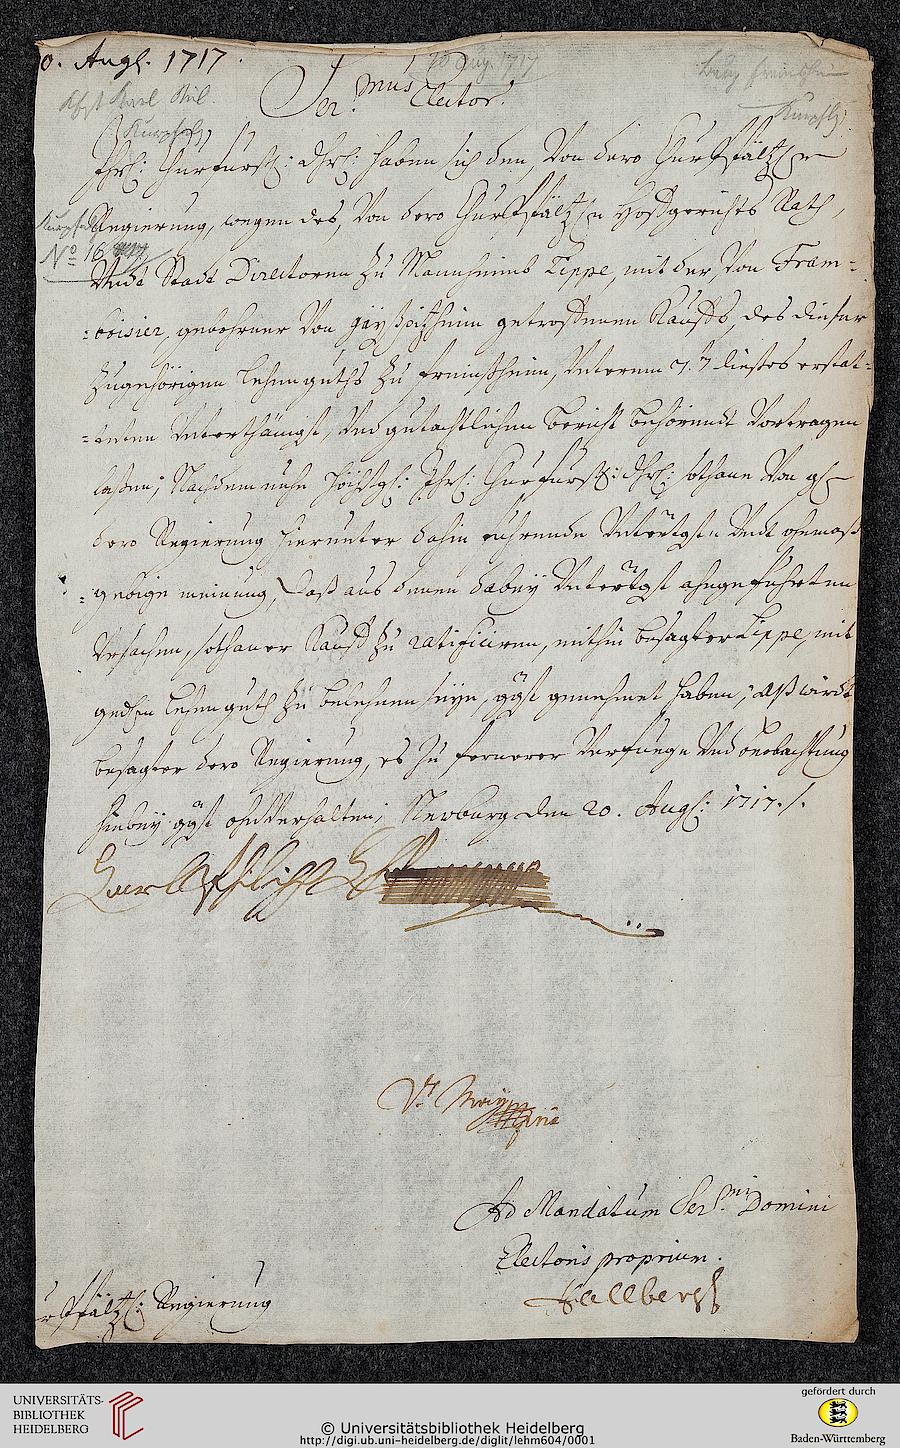 0. Augl. 1717.
20 Aug. 1717
Kurpfalz
Ser.mus Elector.
Ihrl: Churfürstl: dhrl: haben sich den, von dero ChurPfältz.n
Regierung, wegen des, von dero ChurPfältz.n Hoffgerichts Rath,
No 16
Undt Statt Directoren zu Mannheimb Lippe, mit der von Fram-
-boisier, gebohrner von getroffenen Kauffs, des dieser
zugehörigen lehen guths zu freinßheim, Unterem 7. dießes erstat-
-teten Unterthänigst, Und gutachtlichen bericht behörendt Vortragen
laßen; Nachdem nuhn höchstgl: Ihrl: Churfürstl: dhrl: sothane Von
dero Regierung hierunter dahin führende Untertgst. Undt ohnmaß-
-gebige meinung, daß aus denen dabey Untertgst angeführten
Ursachen, sothaner Kauff zu ratificiren, mithin besagter Lippe, mit
lehen guth zu belehnen seye, ggst genehmet haben; Alß wirdt
besagter dero Regierung, es zu fernerer Verfüg. Und beobachtung
hiebey ggst ohnverhalten; Neoburg den 20. Augl: 1717./.
Carl Philipp
Vt
Ad Mandatum Ser.mi Domini
Electoris proprium.
Hallberg
Pfältzl: Regierung
UNIVERSITÄTS-
BIBLIOTHEK
HEIDELBERG
© Universitätsbibliothek Heidelberg
http://digi.ub.uni-heidelberg.de/diglit/lehm604/0001
gefördert durch
Baden-Württemberg